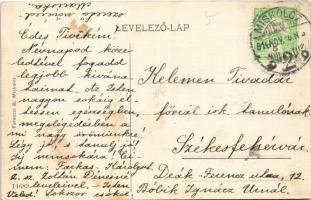 LEVELEZŐ-LAP
MISKOLCZ
Édes Tivikém!
Névnapod köze-
ledtével fogadd
legjobb kivána-
tainat. Az Isten
nagyon sokáig él-
tessen egészségben,
megelégedésben a
mi nagy örömünkre!
Légy jó, s tanulj jól,
míg
mem: Farkas Károly u.
2. sz. Zoltán Dénesné
leveleivel. Isten
Veled! Sokszor csókol
szerető
Kelemen Tivadar
főreál isk. tanulónak.
Székesfehérvár.
Deák-Ferenc utca, 12.
Bóbik Ignácz Urnál.